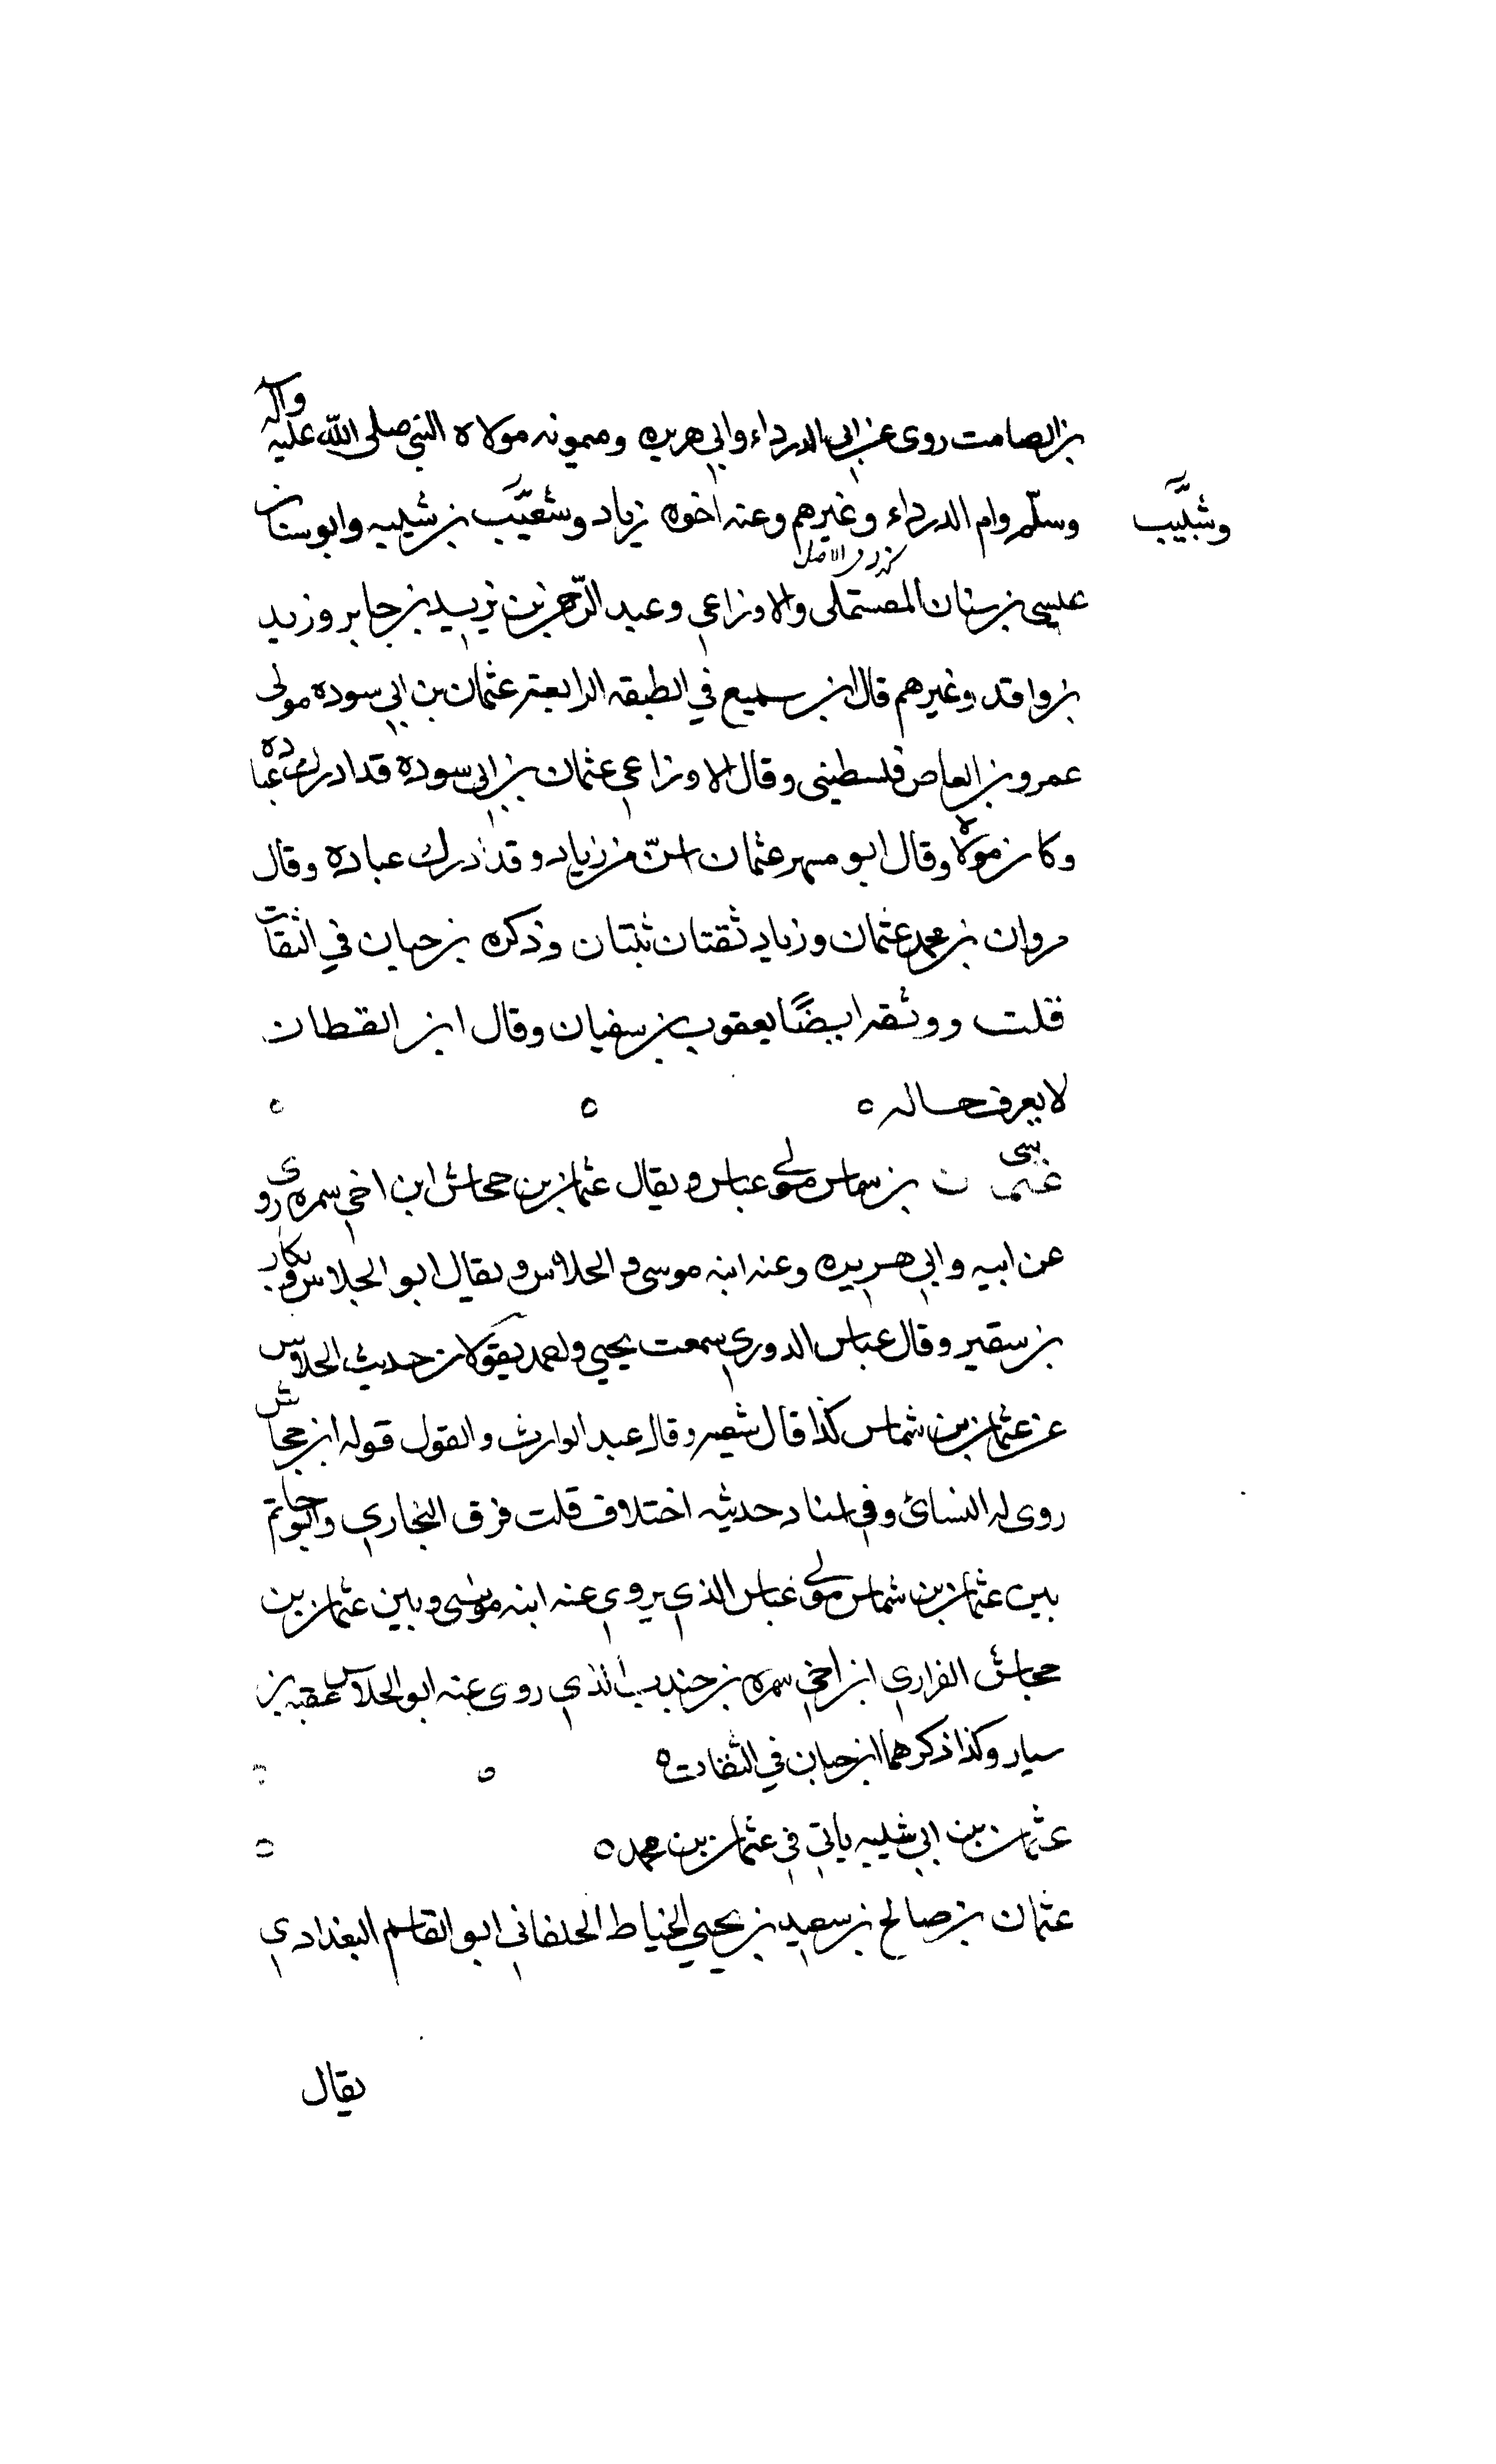 بن الصامت روى عن ابي الدرداء وابي هريره وميمونه مولاة النبي صلى الله عليه وآله
وسلّم وام الدرداء وغيرهم وعنه اخوه زياد وشعيّب بن شيبه وابو سنان
وشبيَّب
كذا في الاصل
عيسى بن سنان المستملى والاوزاعي وعبد الرّحمن بن يزيد بن جابر وزيد
بن واقد وغيرهم قال ابن سميع في الطبقه الرابعة عثمان بن ابي سوده مولى
عمرو بن العاص فلسطيني وقال الاوزاعي عثمان بن ابي سودة قد ادرك عباده
وكان مولاه وقال ابو مسهر عثمان اسنّ من زياد وقد ادرك عبادة وقال
مروان بن محمد عثمان وزياد ثقتان ثبتان وذكره بن حبان في الثقات
قلت ووثقه ايضًا يعقوب بن سفيان وقال ابن القطان
لا يعرف حاله ه
سى
عثمان بن سماس مولى عباس ويقال عثمان بن جحاش ابن اخي سمره روى
عن ابيه وابي هريره وعنه ابنه موسى و الحلاس ويقال ابو الجلاس وبكار
بن سقير وقال عباس الدوري سمعت يحيي ولعمد يقولان حديث الحلاس
عن عثمان بن شماس كذا قال شعبه وقال عبد الوارث والقول قوله ابن جحاش
روى له النسائ وفي اسناد حديثه اختلاف قلت فرق البخاري وابو حاتم
بين عثمان بن شماس مولى عباس الذي يروي عنه ابنه موسى وبين عثمان بن
جحاش الفزاري ابن اخي سمره بن جندب الذي روى عنه ابو الحلاس عقبه بن
سيار وكذا ذكرهما ابن حبان في الثقات ه
عثمان بن ابي شيبه ياتي في عثمان بن محمد ه
عثمان بن صالح بن سعيد بن يحيي الخياط الخلقاني ابو القاسم البغدادي
يقال